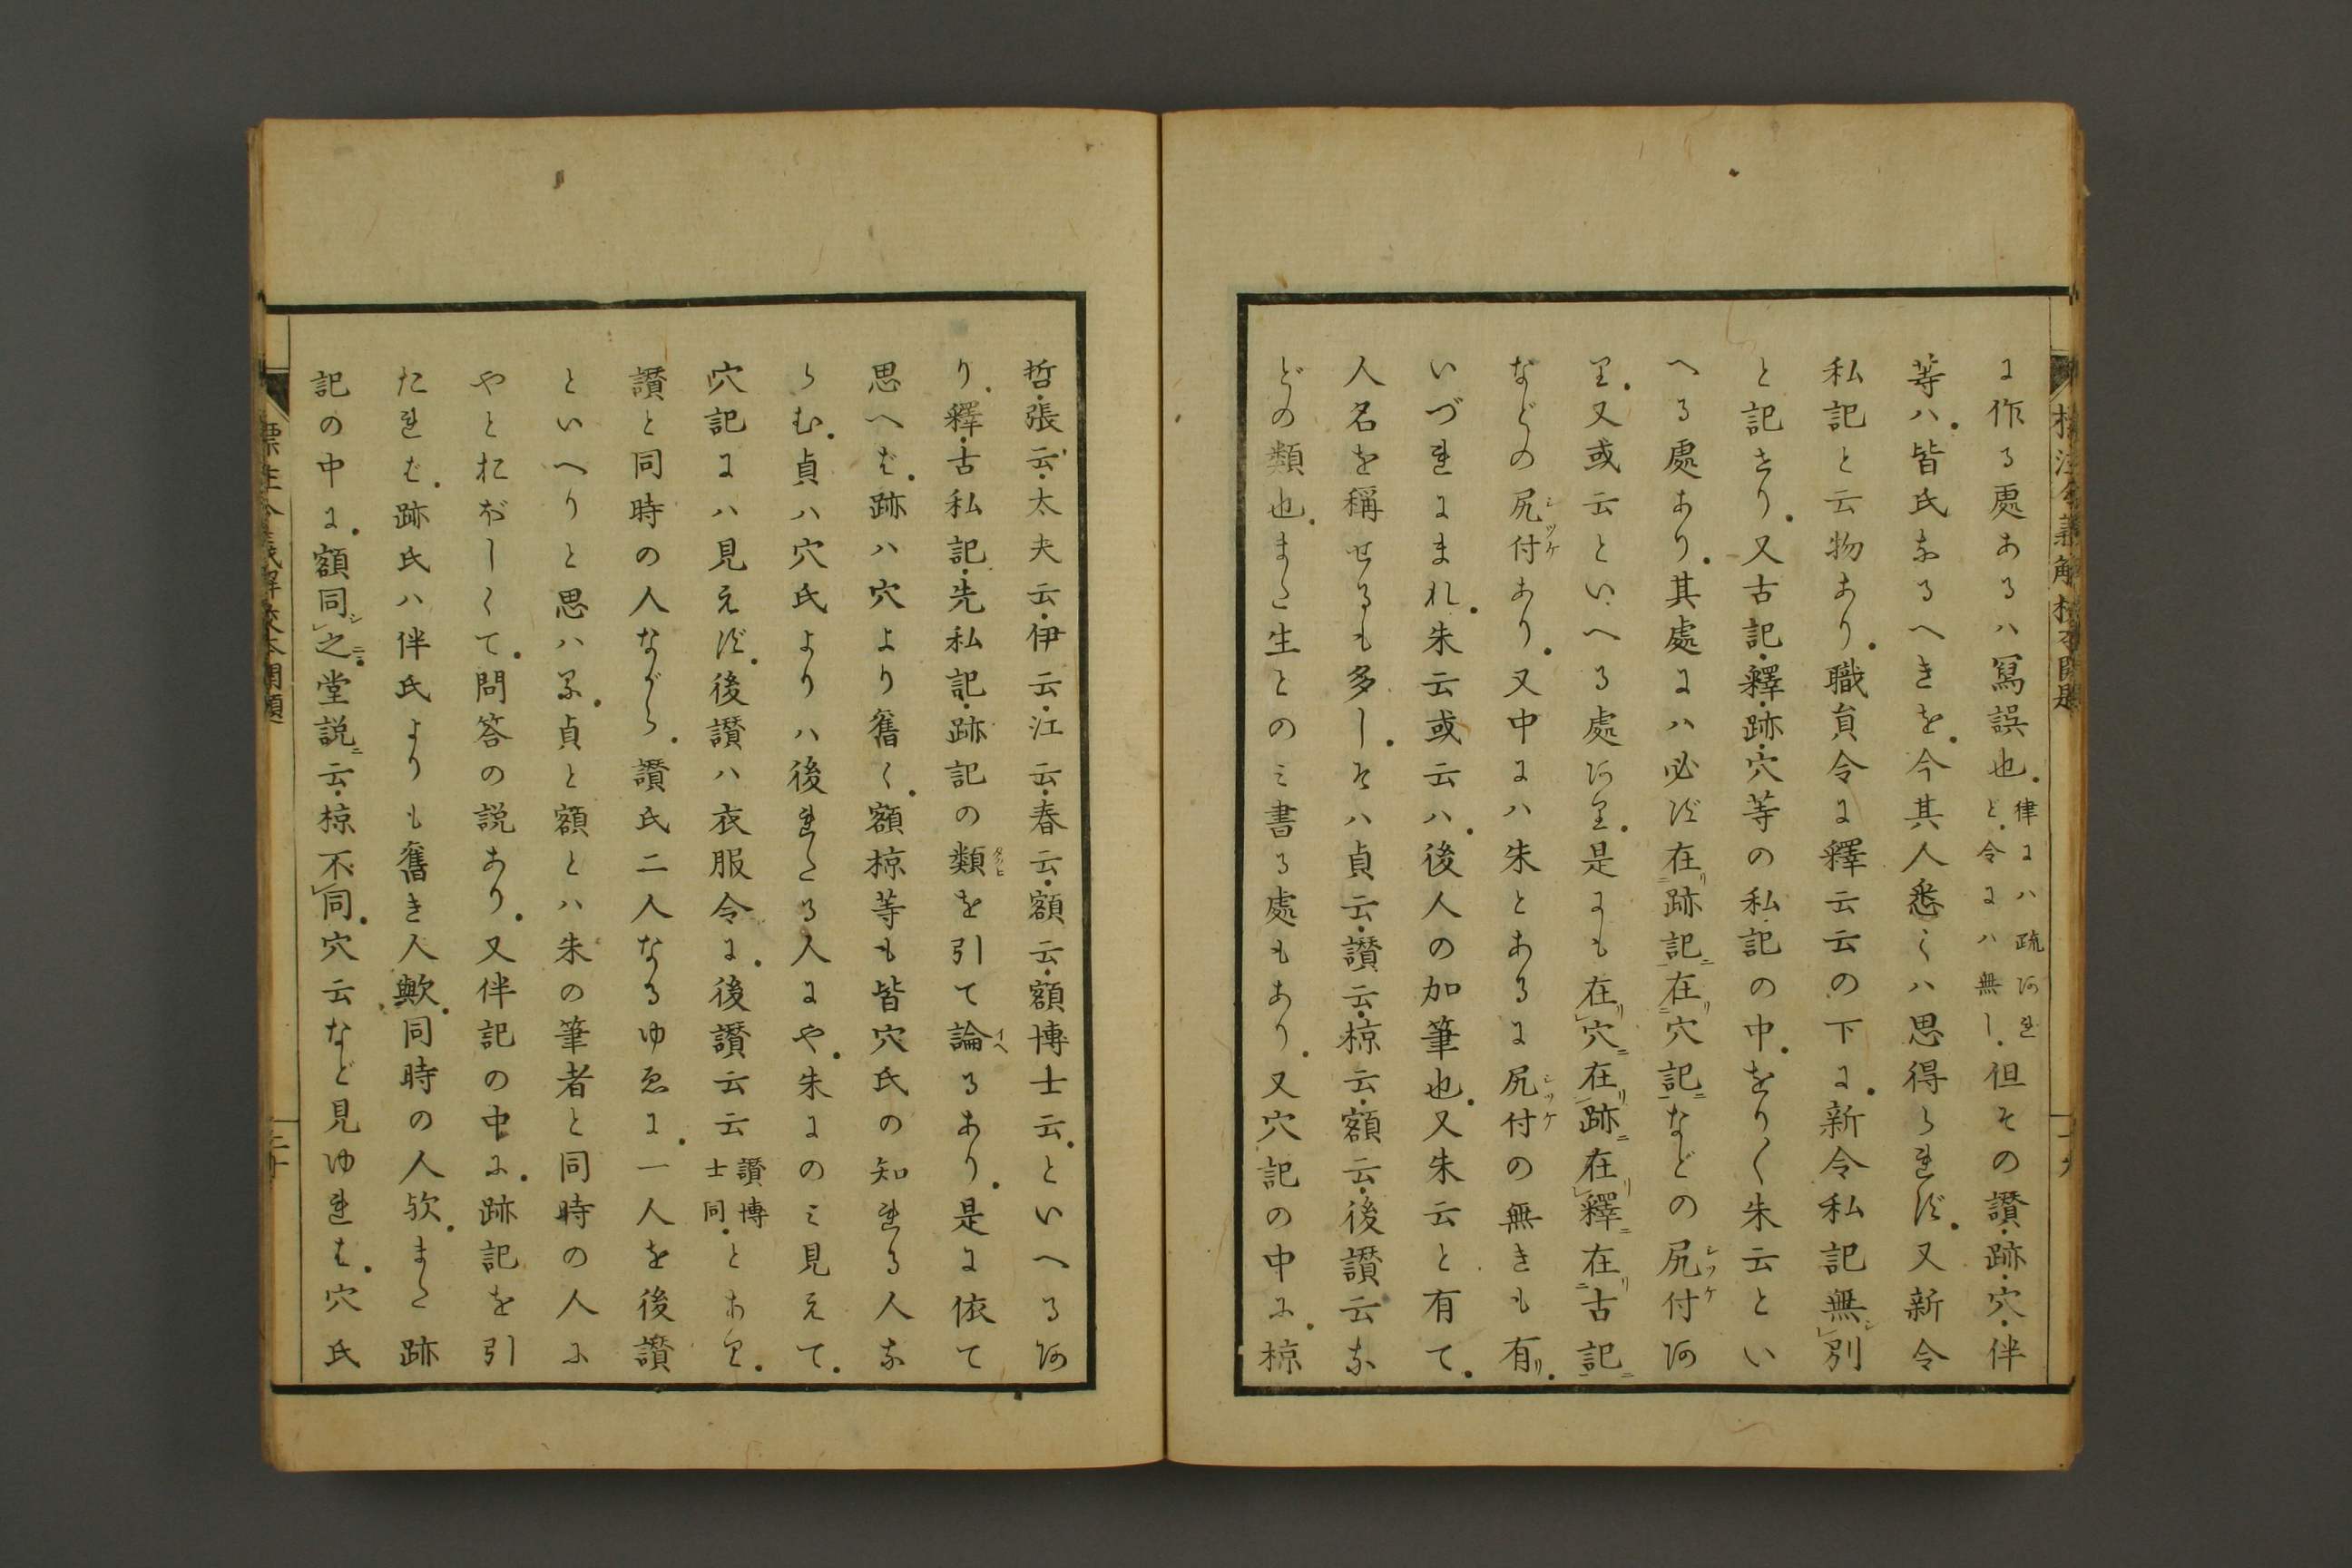 標注令義解校本開題
に作る處あるハ寫誤也。律にハ疏あれど。令にハ無し。但その讃・跡・穴・伴
等ハ。皆氏なるへきを。今其人悉くハ思得られず。又新令
私記と云物あり。職員令に釋云云の下に。新令私記無レ別シ
と記せり。又古記・釋・跡・穴等の私記の中。をり〱朱云とい
へる處あり。其處にハ必ず在リ二跡記ニ一在リ二穴記ニ一などの尻付シツケあ
り。又或云といへる處あり。是にも在リレ穴ニ在リレ跡ニ在リレ釋ニ在リ二古記ニ一
などの尻付シツケあり。又中にハ朱とあるに尻付シツケの無きも有リ。
いづれにまれ。朱云或云ハ。後人の加筆也。又朱云と有て。
人名を稱せるも多し。そハ貞云・讃云・椋云・額云・後讃云な
どの類也。また生とのミ書る處もあり。又穴記の中に。椋
十九
哲・張云・太夫云・伊云・江云・春云・額云・額博士云。といへるあ
り。釋・古私記・先私記・跡記の類タクヒを引て論イヘるあり。是に依て
思へば。跡ハ穴より舊く。額椋等も皆穴氏の知れる人な
らむ。貞ハ穴氏よりハ後れたる人にや。朱にのミ見えて。
穴記にハ見えず。後讃ハ衣服令に。後讃云云讃博士同。とあり。
讃と同時の人ながら。讃氏二人なるゆゑに。一人を後讃
といへりと思ハる。貞と額とハ朱の筆者と同時の人に
やとおぼしくて。問答の説あり。又伴記の中に。跡記を引
たれば。跡氏ハ伴氏よりも舊き人歟。同時の人歟。また跡
記の中に。額同シレ之ニ。堂説ニ云・椋不レ同。穴云など見ゆれば。穴氏
標注令義解校本開題
二十